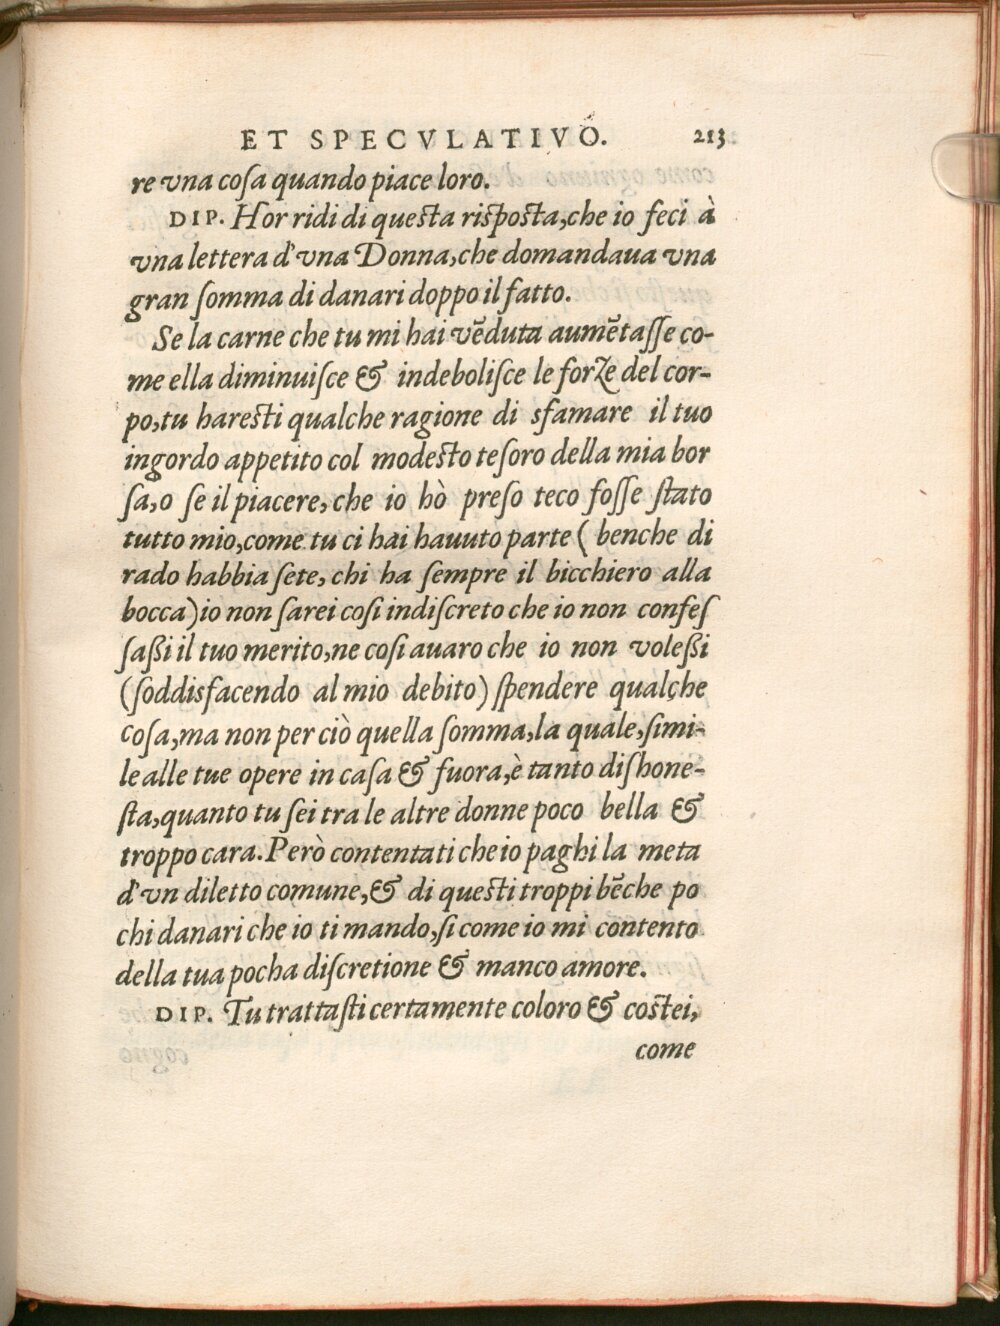 ET SPECVLATIVO. 213
re vna coſa quando piace loro.
DIP. Hor ridi di queſta riſpoſta,che io feci à
vna lettera d'vna Donna,che domandaua vna
gran ſomma di danari doppo il fatto.
Se la carne che tu mi hai vẽduta aumẽtaſſe co-
me ella diminuiſce & indeboliſce le forze del cor-
po,tu hareſti qualche ragione di sfamare il tuo
ingordo appetito col modeſto teſoro della mia bor
ſa,o ſe il piacere, che io hò preſo teco foſſe ſtato
tutto mio,come tu ci hai hauuto parte ( benche di
rado habbia ſete, chi ha ſempre il bicchiero alla
bocca)io non ſarei coſi indiſcreto che io non confeſ
ſaßi il tuo merito,ne coſi auaro che io non voleßi
(ſoddisfacendo al mio debito) ſpendere qualche
coſa,ma non per ciò quella ſomma,la quale,ſimi-
le alle tue opere in caſa & fuora,è tanto diſhone-
ſta,quanto tu ſei tra le altre donne poco bella &
troppo cara.Però contentati che io paghi la meta
d'vn diletto comune,& di queſti troppi bẽche po
chi danari che io ti mando,ſi come io mi contento
della tua pocha diſcretione & manco amore.
DIP. Tu trattaſti certamente coloro & coſtei,
come